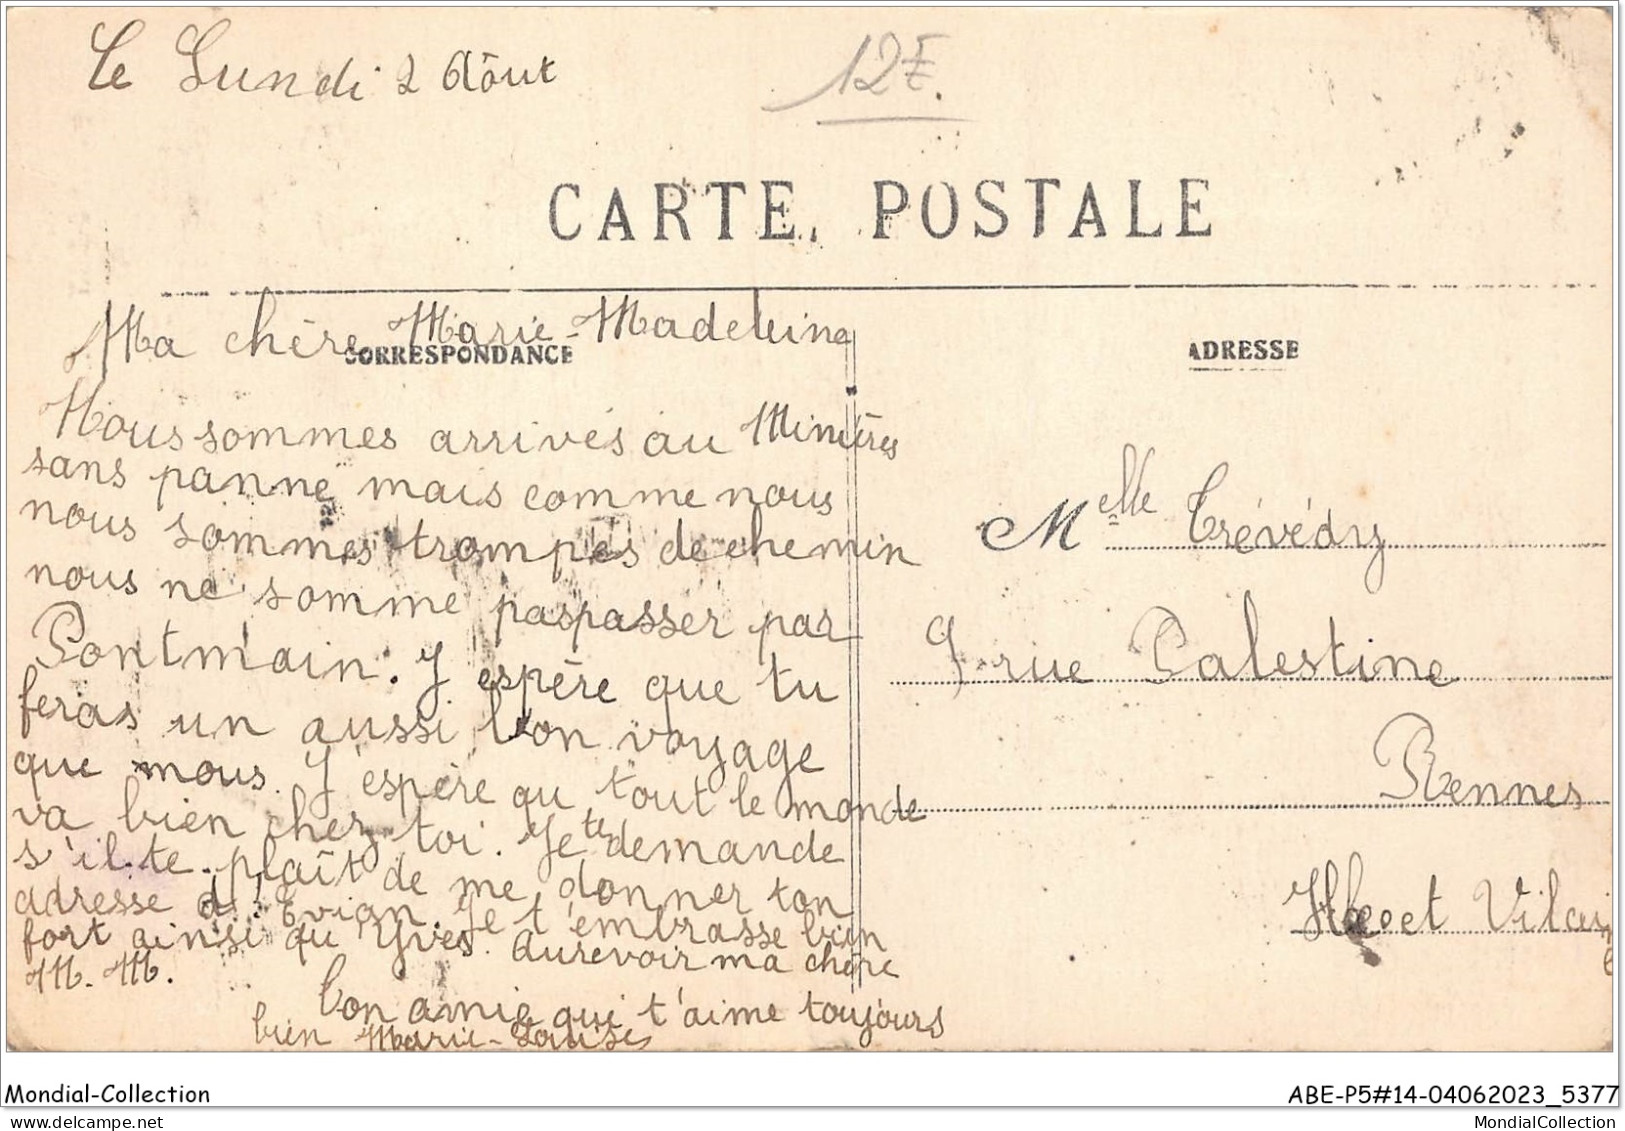 Le Lundi 2 Aôut
12E.
CARTE POSTALE
Ma chère Marie-Madeleine
CORRESPONDANCE
Nous sommes arrivés au Minières
sans panne mais comme nous
nous sommes trompés de chemin
nous ne somme pas passer par
Pontmain. J espère que tu
feras un aussi bon voyage
que nous. J'espère qu tout le monde
va bien chez toi. Je te demande
s'il te plaît de me donner ton
adresse d'Evian. Je t'embrasse bien
fort ainsi qu Yves. Aurevoir ma chère
M. M.
Ton amie qui t'aime toujours
bien Marie-Louise
ADRESSE
Melle Trévédy
9 rue Palestine
Rennes
Ille et Vilain
e
Mondial-Collection
ABE-P5#14-04062023_5377
MondialCollection